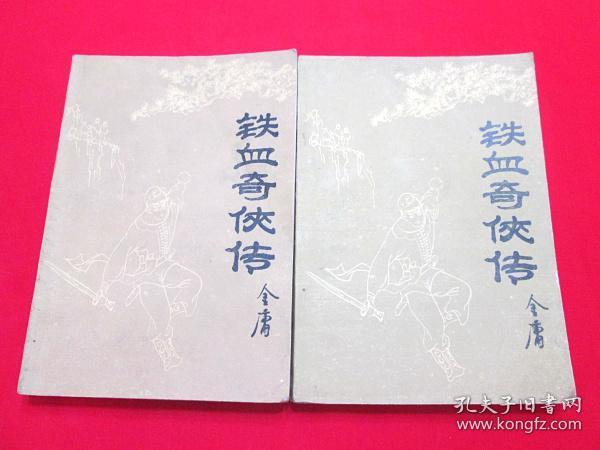 铁血奇侠传
金庸
铁血奇侠传
金庸
孔夫子旧书网
www.kongfz.com